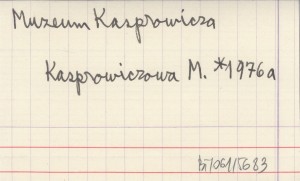 Muzeum Kasprowicza
Kasprowiczowa M. *1976a